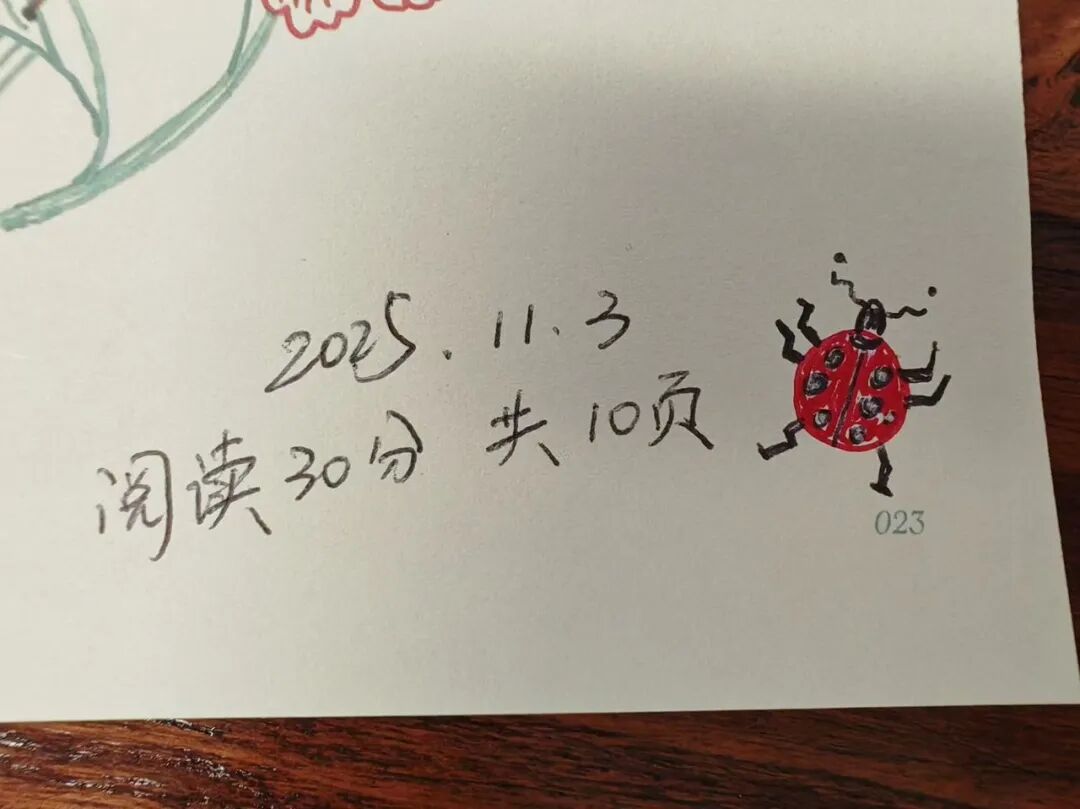 2025.11.3
阅读30分 共10页
023